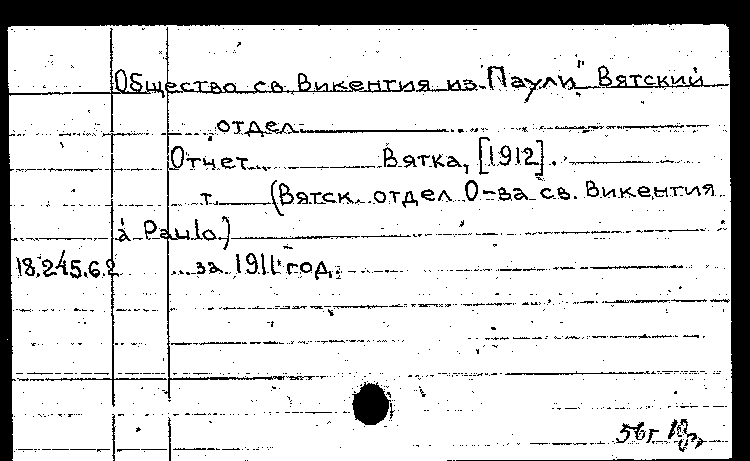 Общество св. Викентия из "Паули" Вятский
отдел.
Отчет... Вятка, [1912].
т. (Вятск. отдел О-ва св. Викентия
à Paulo.)
18.245.6.2 ... за 1911 год.
56г